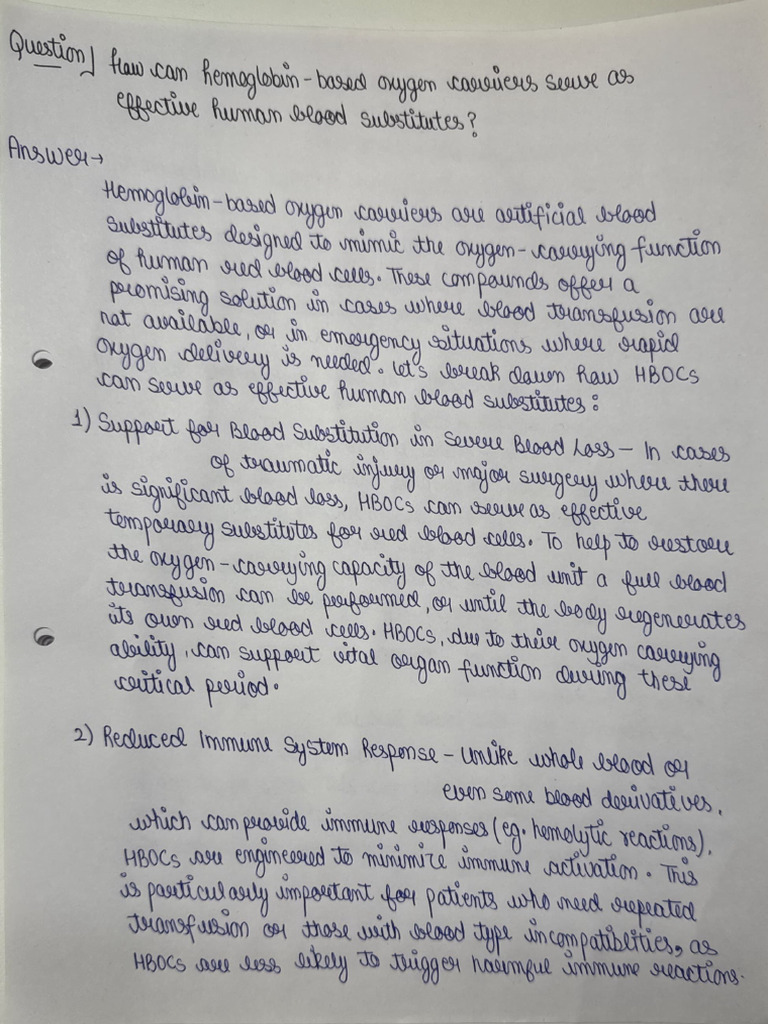 Question] How can hemoglobin-based oxygen carriers serve as
effective human blood substitutes?
Answer→
Hemoglobin-based oxygen carriers are artificial blood
substitutes designed to mimic the oxygen-carrying function
of human red blood cells. These compounds offer a
promising solution in cases where blood transfusion are
not available, or in emergency situations where rapid
oxygen delivery is needed. Let's break down how HBOCs
can serve as effective human blood substitutes:
1) Support for Blood Substitution in Severe Blood Loss – In cases
of traumatic injury or major surgery where there
is significant blood loss, HBOCs can serve as effective
temporary substitutes for red blood cells. To help to restore
the oxygen-carrying capacity of the blood until a full blood
transfusion can be performed, or until the body regenerates
its own red blood cells. HBOCs, due to their oxygen carrying
ability, can support vital organ function during these
critical period.
2) Reduced Immune System Response – Unlike whole blood or
even some blood derivatives,
which can provide immune responses (eg. hemolytic reactions),
HBOCs are engineered to minimize immune activation. This
is particularly important for patients who need repeated
transfusion or those with blood type incompatibilties, as
HBOCs are less likely to trigger harmful immune reactions.